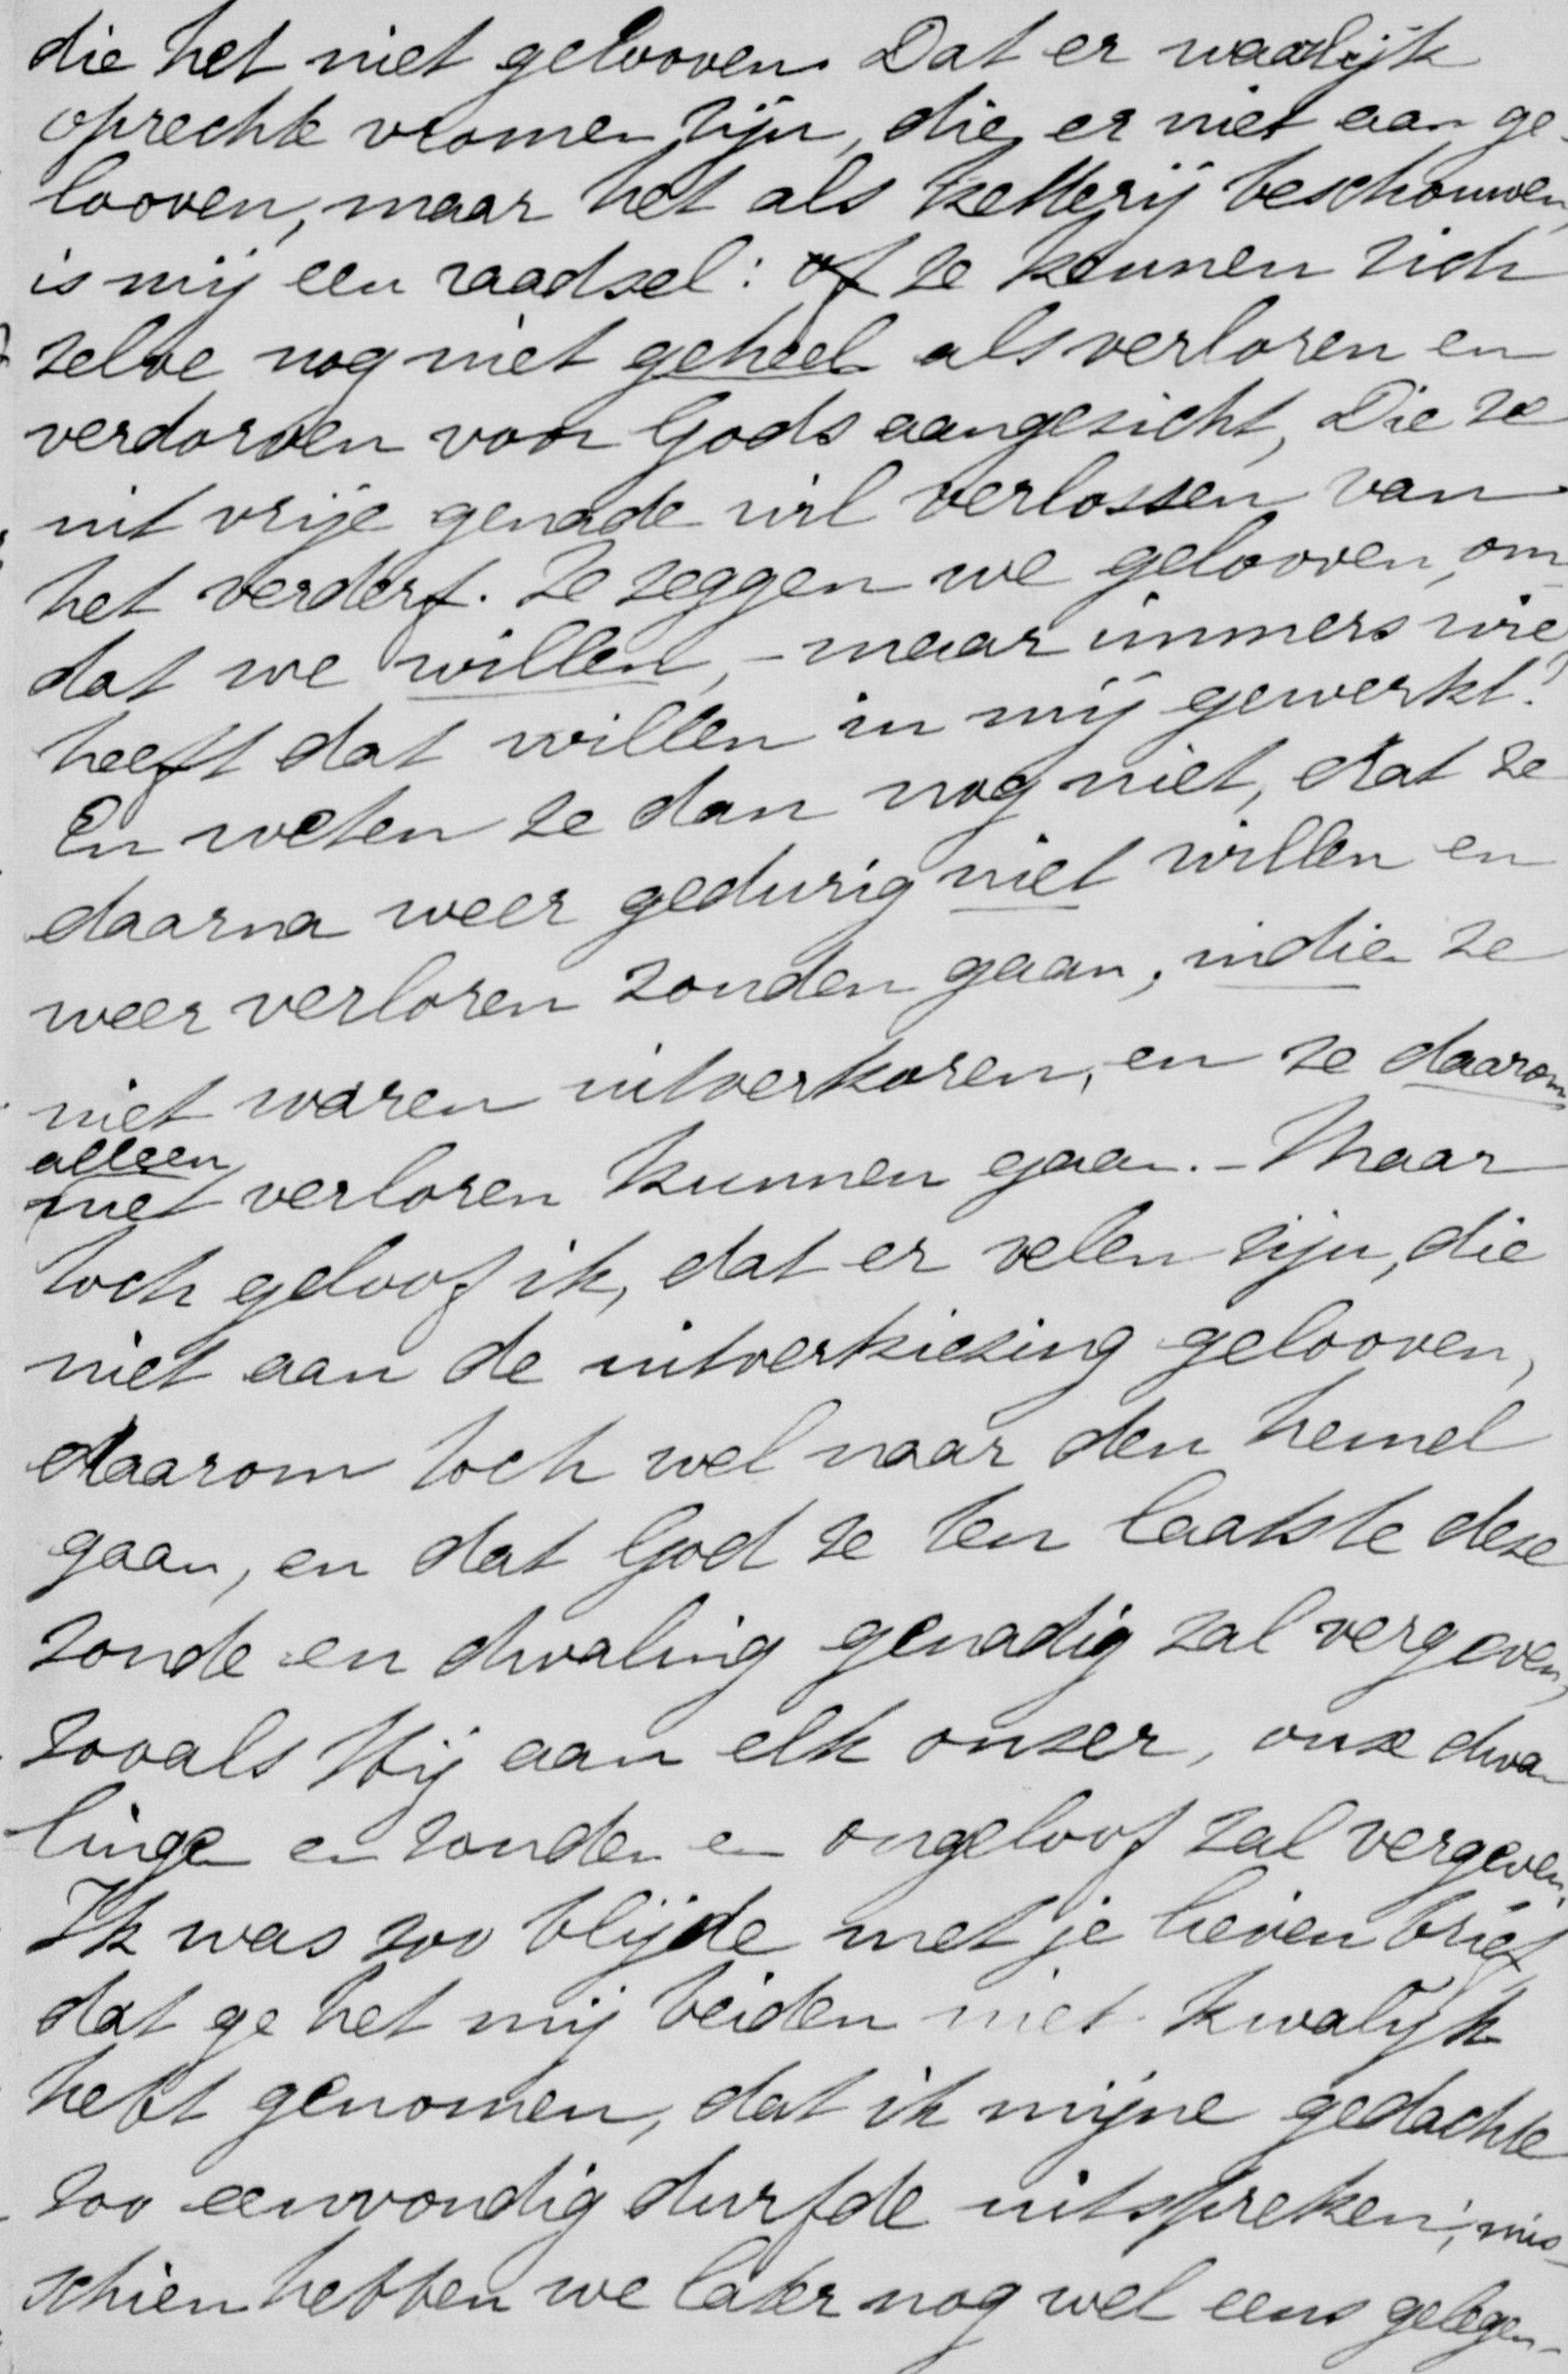 die het niet gelooven. Dat er waarlijk
oprechte vromen zijn, die er niet aan ge-
looven, maar het als ketterij beschouwen,
is mij een raadsel: of ze kennen zich
zelve nog niet geheel als verloren en
verdorven voor Gods aangezicht, Die ze
uit vrije genade wil verlossen van
het verderf. Ze zeggen we gelooven, om
dat we willen, - maar immers wie
heeft dat willen in mij gewerkt?
En weten ze dan nog niet, dat ze
daarna weer gedurig niet willen en
weer verloren zouden gaan, indien ze
niet waren uitverkoren, en ze daarom
alleen
niet verloren kunnen gaan. - Maar
toch geloof ik, dat er velen zijn, die
niet aan de uitverkiezing gelooven,
daarom toch wel naar den hemel
gaan, en dat God ze ten laatste deze
zonde en dwaling genadig zal vergeven,
zooals Hij aan elk onzer, onze dwa-
lingen en zonden en ongeloof zal vergeven.
Ik was zoo blijde met je lieven brief
dat ge het mij beiden niet kwalijk
hebt genomen, dat ik mijne gedachte
zoo eenvoudig durfde uitspreken; mis-
schien hebben we later nog wel eens gelegen-